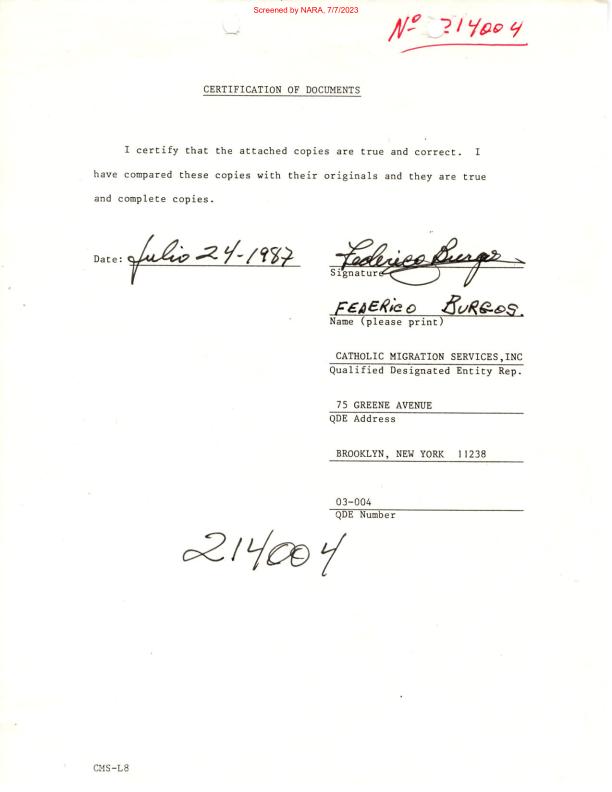 Screened by NARA, 7/7/2023
Nº 214004
CERTIFICATION OF DOCUMENTS
I certify that the attached copies are true and correct. I
have compared these copies with their originals and they are true
and complete copies.
Date: Julio 24-1987
Federico Burgos
Signature
FEDERICO BURGOS.
Name (please print)
CATHOLIC MIGRATION SERVICES,INC
Qualified Designated Entity Rep.
75 GREENE AVENUE
QDE Address
BROOKLYN, NEW YORK 11238
03-004
QDE Number
214004
CMS-L8